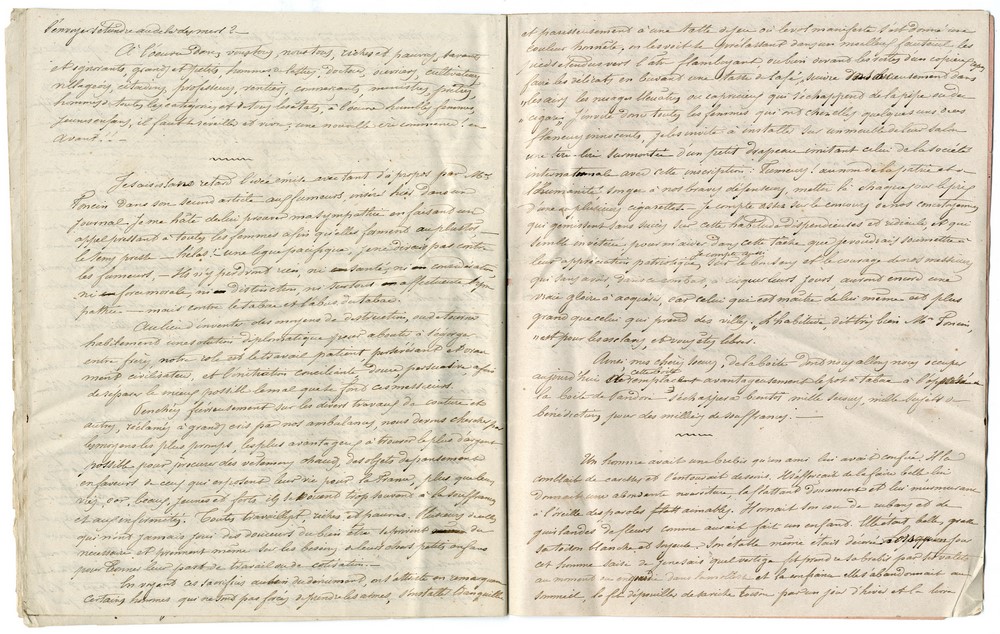 l'envoyer s'étendre au delà des mers ?
À l'œuvre donc, vous tous, nous tous, riches et pauvres, savants
et ignorants, grands et petits, hommes de lettres, docteurs, ouvriers, cultivateurs,
villageois, citadins, professeurs, rentiers, commerçants, ministres, prêtres,
hommes de toutes les catégories et de tous les états, à l'œuvre humbles femmes,
jeunes enfans, il faut se réveiller et vivre ; une nouvelle ère commence ! en
avant !!
J'ai saisi sans retard l'idée émise avec tant d'à propos par Mr
Poncin dans son second article aux fumeurs, inséré hier dans un
journal. Je me hâte de lui prouver ma sympathie en faisant un
appel pressant à toutes les femmes afin qu'elles forment au plus tôt,
le temps presse — hélas ! — une ligue pacifique, je ne dirai pas contre
les fumeurs, — Ils n'y perdront rien, ni en santé, ni en considération
ni en force morale, ni en distinction, ni surtout en affectueuse sym-
pathie — mais contre le tabac et l'abus du tabac.
Au lieu d'inventer des moyens de destruction, ou de tenir
habilement une solution diplomatique pour aboutir à s'égorger
entre frères, notre rôle est le travail patient,
ment civilisateur, et l'initiation conciliante, douce, persuasive afin
de réparer le mieux possible le mal que se font ces messieurs.
Penchées fiévreusement sur les divers travaux de couture et
autres, réclamés à grands cris par nos ambulances, nous devons chercher par
les moyens les plus prompts, les plus avantageux à trouver le plus d'argent
possible pour procurer des vêtements chauds, des objets de pansement
en faveur de ceux qui exposent leur vie pour la France, plus que leur
vie, car beaux, jeunes et forts, ils se voient trop souvent à la souffrance
et aux infirmités. Toutes travaillent, riches et pauvres. Plusieurs d'entre elles
qui n'ont jamais joui des douceurs du bien être se privent du
nécessaire et prennent même sur les besoins de leurs chers petits enfans
pour donner leur part de travail ou de cotisation.
En voyant ces sacrifices au bien du dénuement, on s'attriste en remarquant
certains hommes, qui ne sont pas forcés de prendre les armes, s'installer tranquille
et paresseusement à une table de jeu où le vol manifeste s'est donné une
couleur honnête, on les voit se prélassant dans un meilleur fauteuil les
pieds étendus vers l'âtre flamboyant ou bien devant les tables d'un copieux repas
faire les délicats en buvant une tasse de café, suivre dans
les airs les nuages bleuâtres ou capricieux qui s'échappent de la pipe ou du
cigare. J'invite donc toutes les femmes qui ont chez elles quelques uns de ces
flâneurs innocents, je les invite à installer sur un meuble de leur salon
une tire-lire surmontée d'un petit drapeau imitant celui de la Société
internationale avec cette inscription : Fumeurs, au nom de la patrie et de
l'humanité songez à nos braves défenseurs, mettez là chaque jour le prix
d'une ou plusieurs cigarettes. — Je compte assez sur le concours de nos concitoyennes
qui gémissent sans succès sur cette habitude dispendieuse et ridicule, et qui
semble invétérée, pour m'aider dans cette tâche que je voudrais soumettre à
leur appréciation patriotique. Je compte aussi sur le bon sens et le courage de nos messieurs
qui sans avoir, dans ce combat, à risquer leurs jours, auront encore une
vraie gloire à acquérir, car celui qui est maître de lui même est plus
grand que celui qui prend des villes. L'habitude, dit très bien Mr Poncin,
n'est que pour les esclaves, et vous êtes libres.
Ainsi mes chères sœurs, de la boîte dont nous allons nous occuper
aujourd'hui cette boîte remplaçant avantageusement le pot à tabac à l'opposé de
la boîte de Pandore s'échappera bientôt mille secours, mille bienfaits et
bénédictions pour des milliers de souffrances ; —
Un homme avait une brebis qu'un ami lui avait confiée. Il la
comblait de caresses et l'entourait de soins. Il s'efforçait de la faire belle lui
donnait une abondante nourriture, la flattait doucement et lui murmurait
à l'oreille des paroles aimables. Il ornait son cou de rubans et de
guirlandes de fleurs comme aurait fait un enfant. Elle était belle, grasse
sa toison blanche et soyeuse. Son étable même était décorée un jour
cet homme saisi de je ne sais quel vertige se prend de sa brebis par
au moment où dans l'innocence et la confiance elle s'abandonnait au
sommeil, la fit dépouiller de sa riche toison par un jour d'hiver et la livra